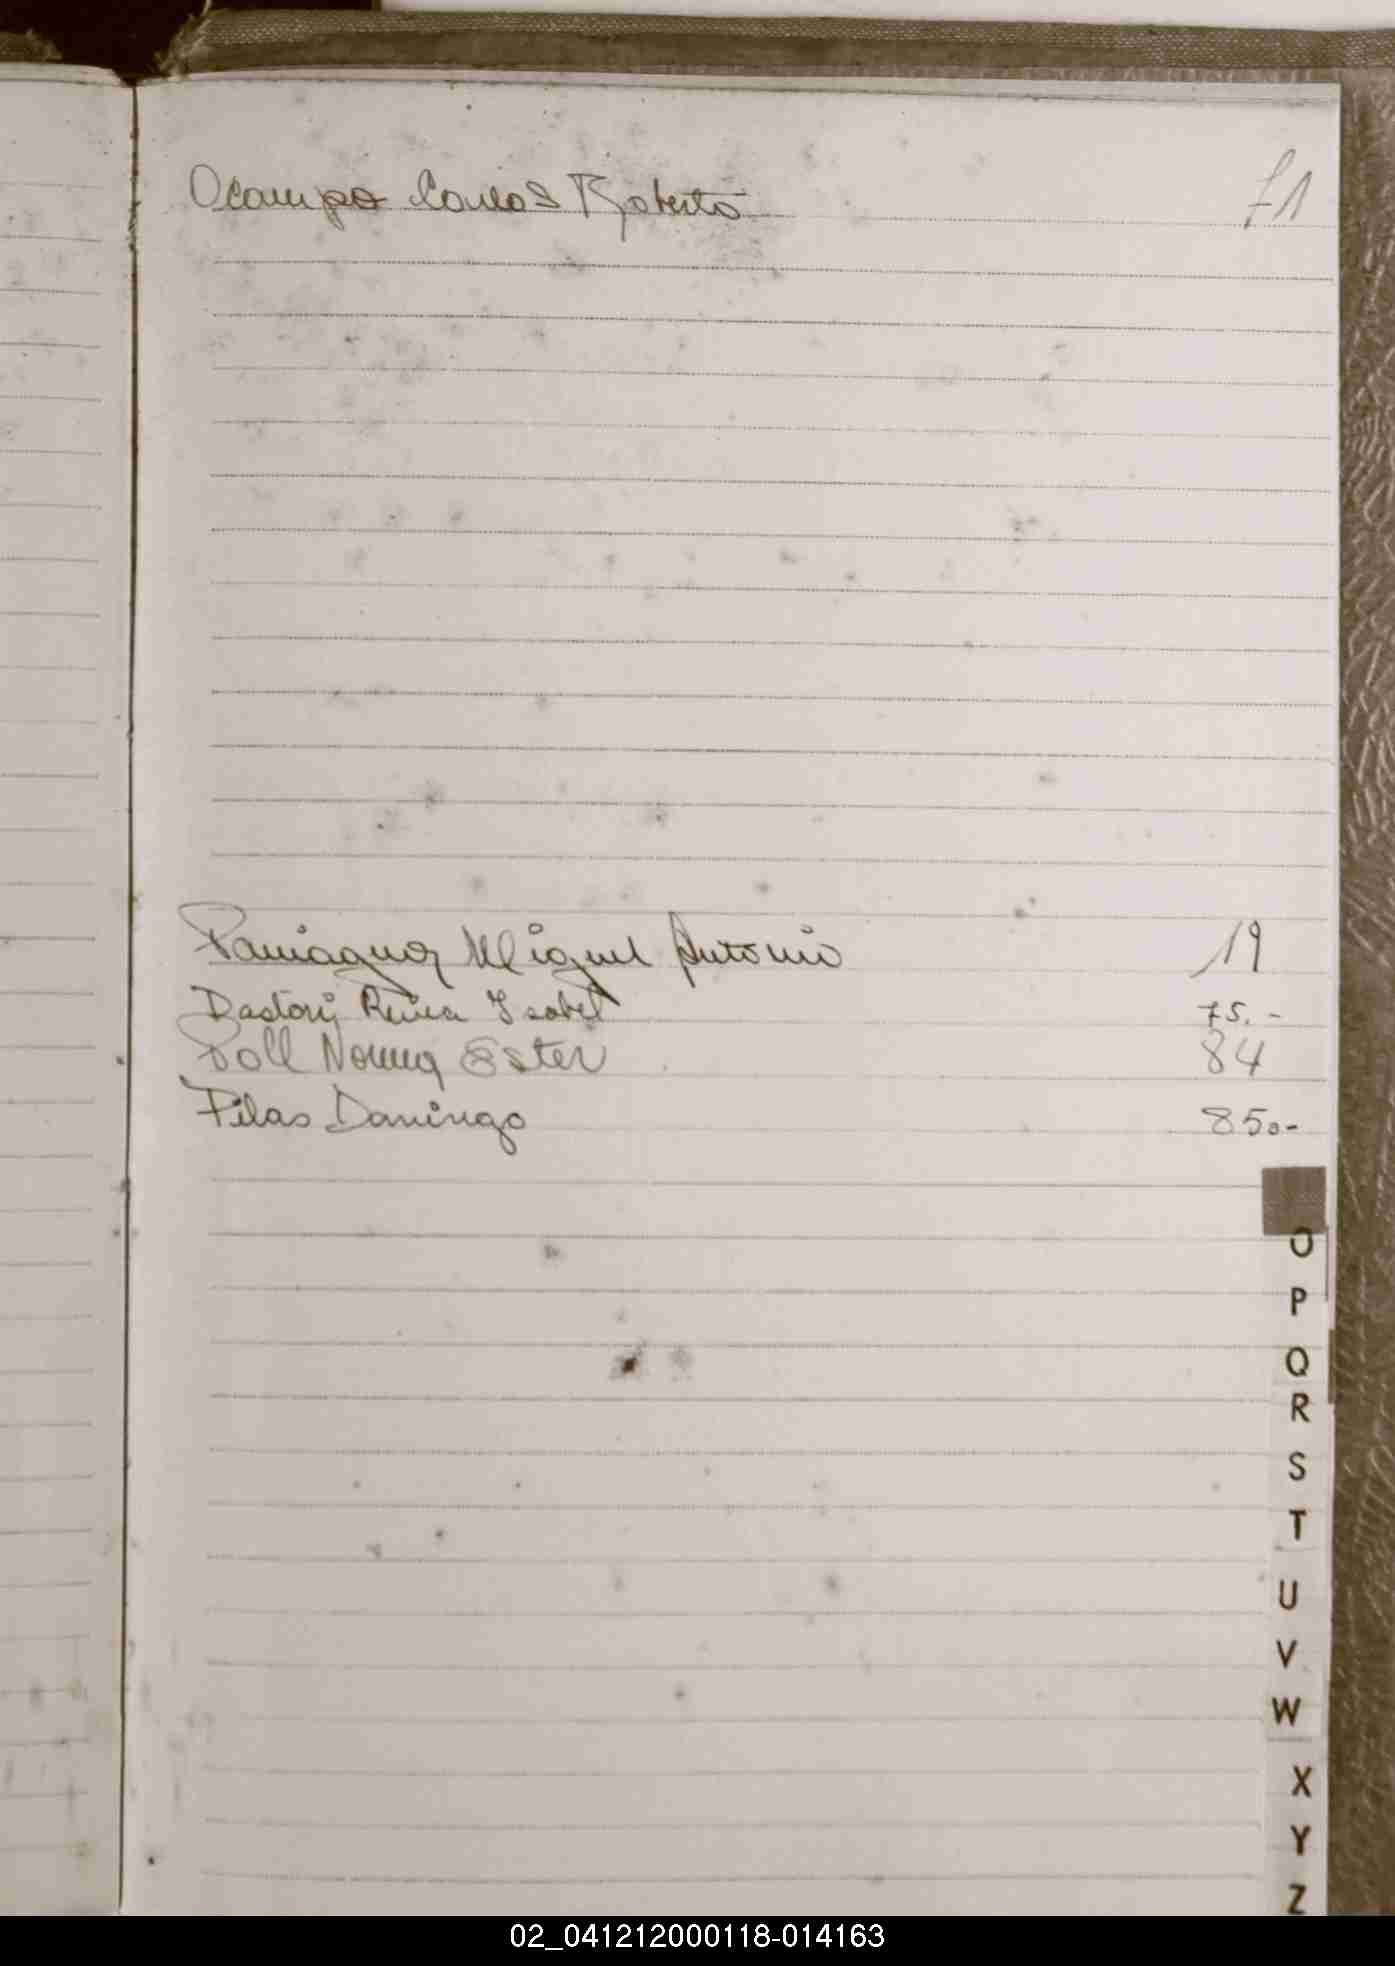 Ocampo Carlos Roberto 71
Paniagua Miguel Antonio 19
Pastori Reina Isabel 75.-
Poll Norma Ester 84
Pilas Domingo 85.-
O
P
Q
R
S
T
U
V
W
X
Y
Z
02_041212000118-014163